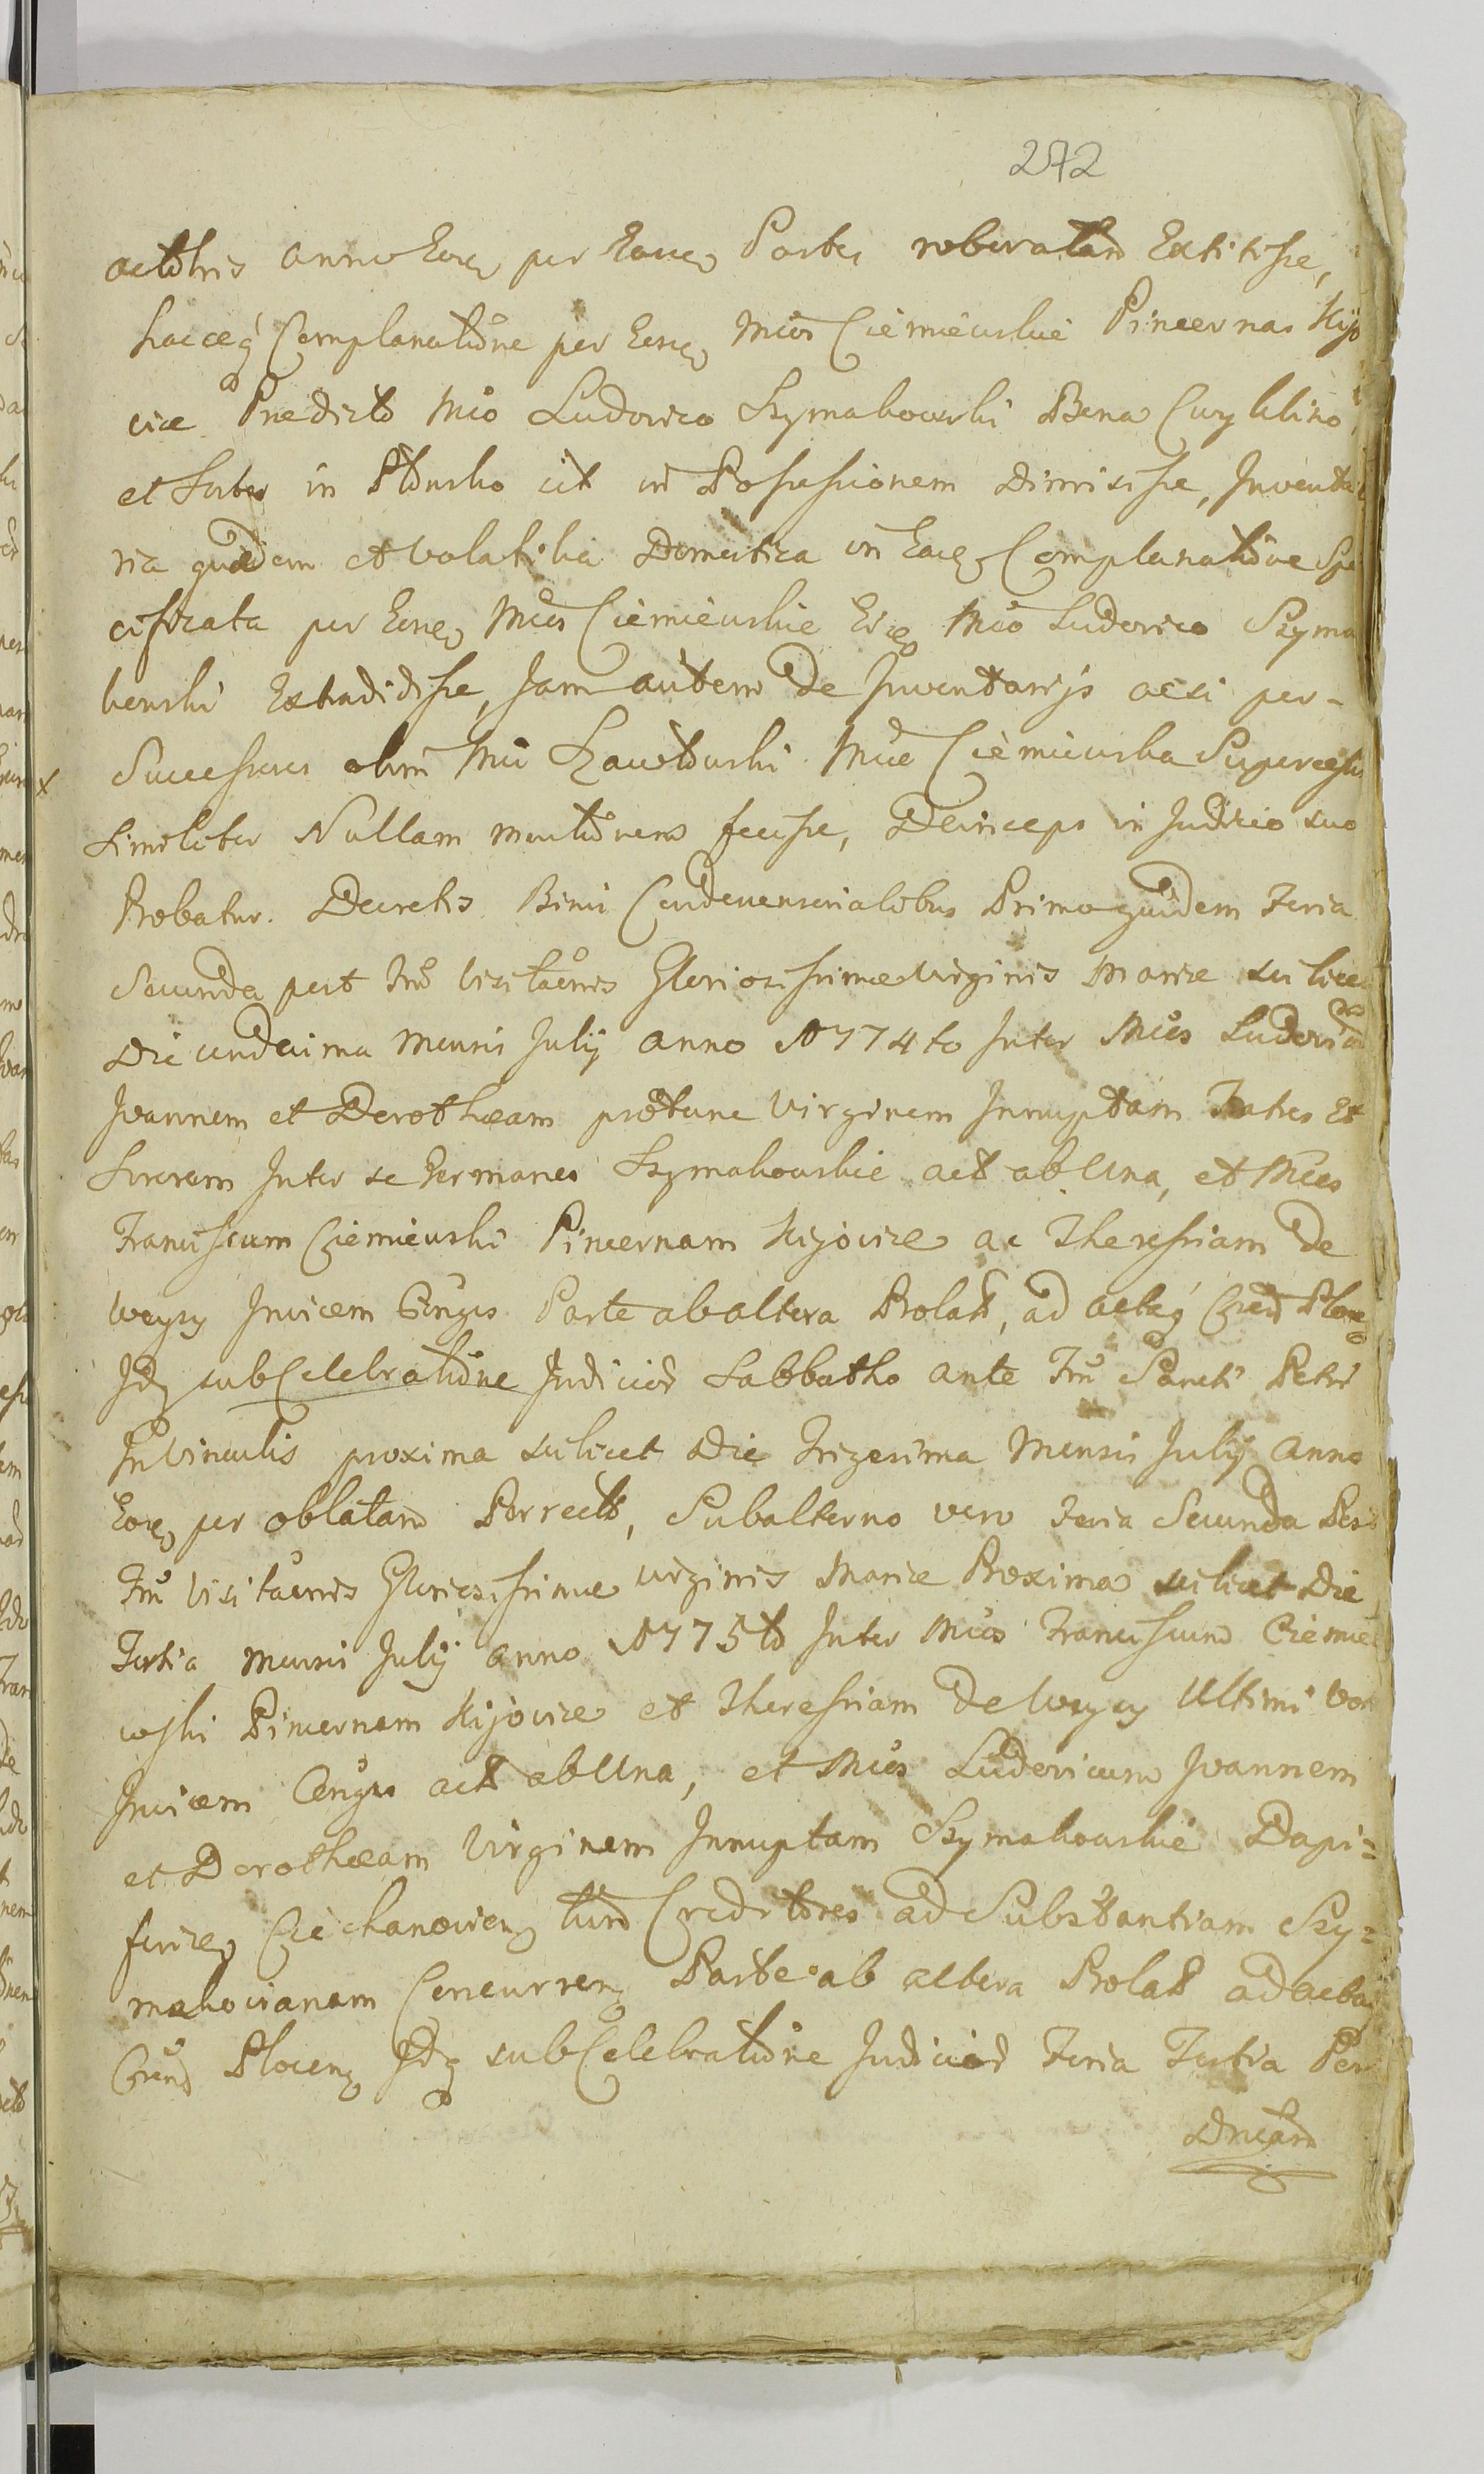 272
actobris anno Eoq per Easq Partes roboratam Extitisse,
hacceq Complanatione per Eosq Mcos Ciemiewskie Pincernas Kijo
viæ Prædicto Mco Ludovico Szymakowski Bona Cwyklino
et Sortes in Płońsko cit in Possessionem Dimisisse, Inventa
ria quædam et volatilia Domestica in Eaq Complanatione Spe
cificata per Eosq Mcos Ciemiewskie Eiq Mco Ludovico Szyma
kowski Extradidisse, Jam autem de Inventarijs acsi per-
Successores olim Mci Mcæ Ciemiewska
Similiter Nullam mentionem fecisse, Deinceps in Judicio suo
Probatur. Decretis Binis Condescensorialibus Primo quidem Feria
Secunda post Fm Visitaõnis Gloriosissimæ Virginis Mariæ scilicet
Die undecima Mensis Julij Anno 1774to Inter Mcos Ludovicum
Joannem et Dorotheam protunc Virginem Innuptam Fratres Et
Sororem Inter se Germanos Szymakowskie act ab Una, et Mcos
Franciscum Ciemiewski Pincernam Kijoviæ ac Theressiam de
Weysy Invicem Conges Parte ab altera Prolat, ad actaq Plocen
Idq sub Celebratione Judicior Sabbatho ante Fm Sancti Petri
In Vinculis proxima scilicet Die Trigesima Mensis Julij Anno
Eoq per oblatam Porrecto, Subalterno vero Feria Secunda Post
Fm Visitaõnis Gloriosissimæ Virginis Mariæ Proxima scilicet Die
Tertia Mensis Julij anno 1775to Inter Mcos Franciscum Ciemie
wski Pincernam Kijoviæ et Theressiam de Weysy Ultimi Voti
Invicem Conges act ab Una, et Mcos Ludovicum Joannem
et Dorotheam Virginem Innuptam Szymakowskie Dapi=
feriæ Ciechanovien tum Creditores ad Substantiam Szy=
makovianam Concurren Parte ab altera Prolat ad acta
Plocen Idq sub Celebratione Judicior Feria Tertia Post
Dnicam